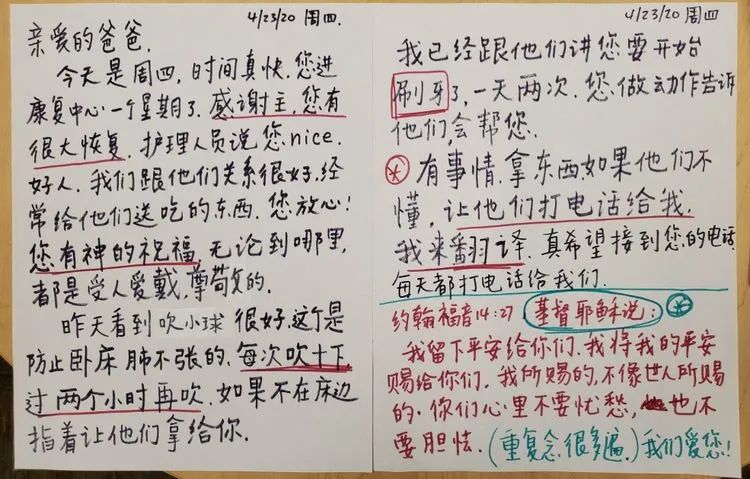 4/23/20 周四.
亲爱的爸爸.
今天是周四,时间真快.您进
康复中心一个星期了.感谢主,您有
很大恢复.护理人员说您nice.
好人.我们跟他们关系很好.经
常给他们送吃的东西.您放心!
您有神的祝福,无论到哪里,
都是受人爱戴,尊敬的.
昨天看到吹小球很好.这个是
防止卧床肺不张的.每次吹十下,
过两个小时再吹.如果不在床边
指着让他们拿给你.
4/23/20 周四
我已经跟他们讲您要开始
刷牙了,一天两次.您做动作告诉
他们,会帮您.
有事情.拿东西如果他们不
懂,让他们打电话给我.
我来翻译.真希望接到您的电话.
每天都打电话给我们.
约翰福音14:27.基督耶稣说:
我留下平安给你们.我将我的平安
赐给你们.我所赐的,不像世人所赐
的.你们心里不要忧愁,也不
要胆怯.(重复念.很多遍.)我们爱您!